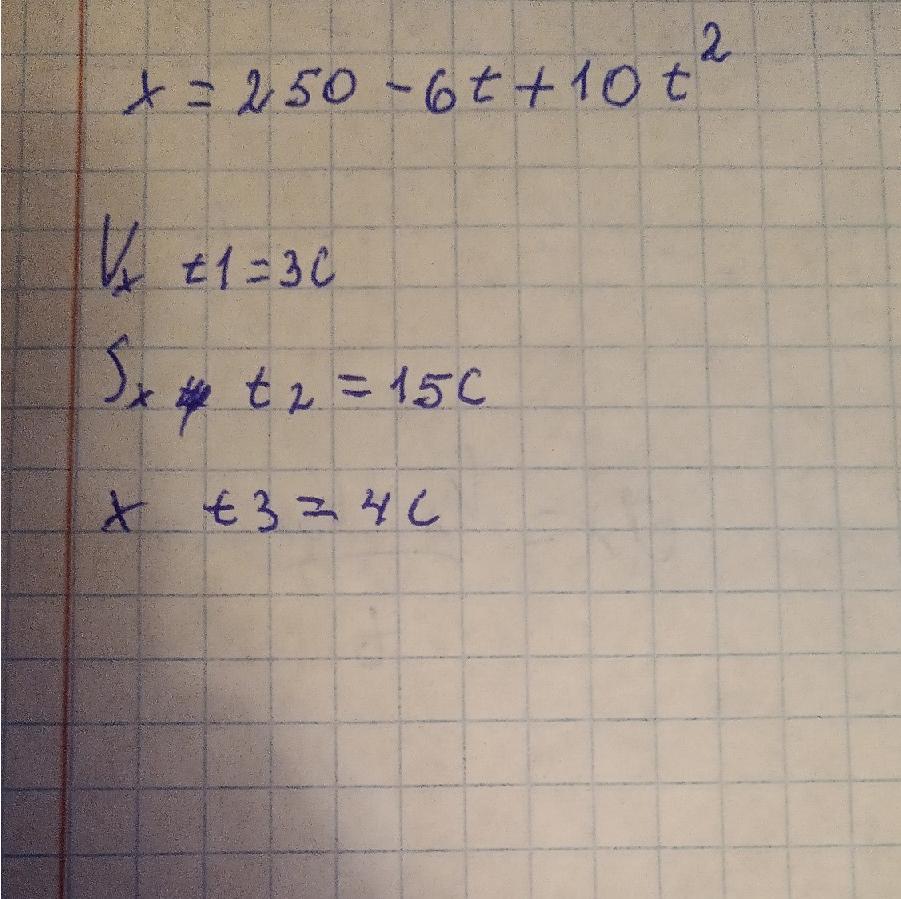 x = 250 - 6t + 10t²
Vx t1 = 3c
Sx t2 = 15c
x t3 = 4c